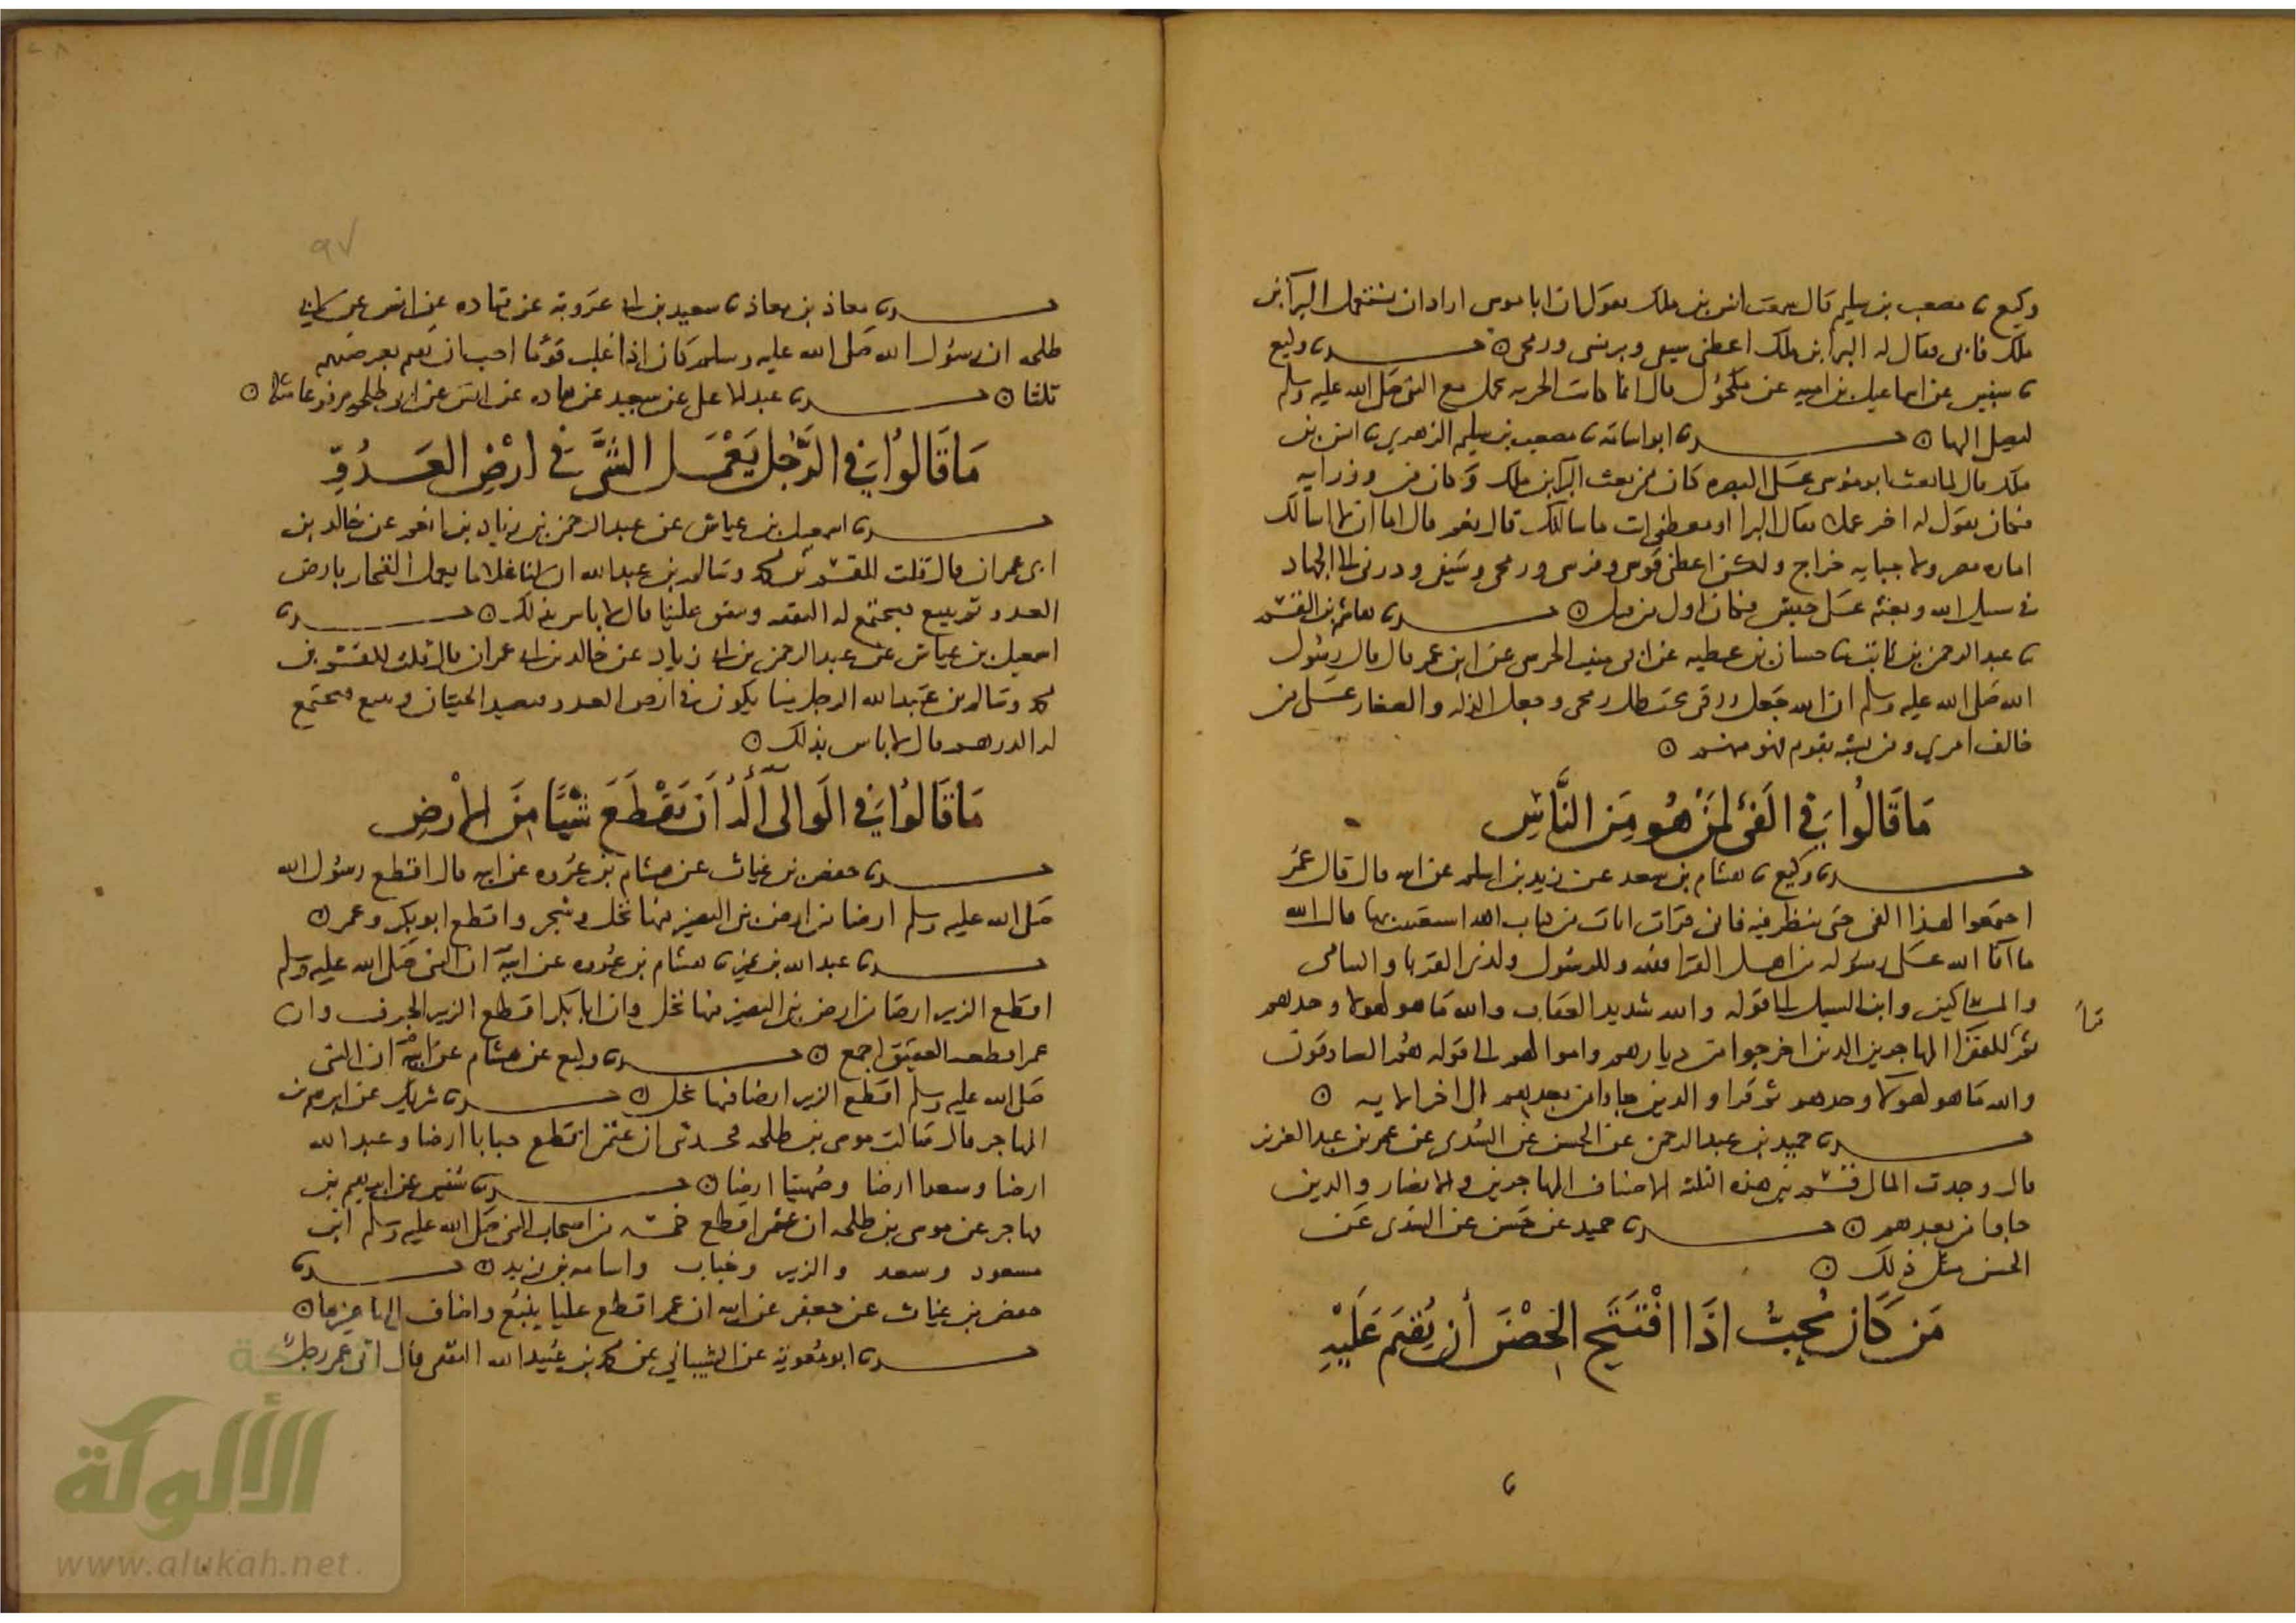 وكيع ثنا مصعب بن سليم قال سمعت انس بن ملك يقول ان ابا موسى اراد ان يستعمل البرا بن
ملك فابى فقال له البرا بن ملك اعطني سيفي وترسي ورمحي ۞ حدثنا وكيع
ثنا سفين عن اسماعيل بن اميه عن مكحول قال انما كانت الحربه تحمل مع النبي صلى الله عليه وسلم
ليصلي اليها ۞ حدثنا ابو اسامة ثنا مصعب بن سليم الزهري ثنا انس بن
ملك قال لما بعث ابو موسى على البصره كان ممن بعث البرا بن ملك وكان من وزرايه
فكان يقول له اختر عملا فقال البرا او معطي انت ما سالتك قال نعم قال اما اني لا اسالك
اماره مصر ولا جبايه خراج ولكن اعطني قوسي وفرسي ورمحي وسيفي وذرني الى الجهاد
في سبيل الله وبعثه على جيش فكان اول من قتل ۞ حدثنا هاشم بن القسم
ثنا عبد الرحمن بن ثابت ثنا حسان بن عطيه عن ابي منيب الجرشي عن ابن عمر قال قال رسول
الله صلى الله عليه وسلم ان الله جعل رزقي تحت ظل رمحي وجعل الذله والصغار على من
خالف امري ومن تشبه بقوم فهو منهم ۞
ما قالوا في الفئ لمن هو من الناس
حدثنا وكيع ثنا هشام بن سعد عن زيد بن اسلم عن ابيه قال قال عمر
اجتمعوا لهذا الفي حتى ننظر فيه فاني قرات ايات من كتاب الله استغنيت بها قال الله
ما افا الله على رسوله من اهل القرا فلله وللرسول ولذي القربا واليتامى
والمساكين وابن السبيل الى قوله والله شديد العقاب والله ما هو لهولا وحدهم
ثم قرا للفقرا المهاجرين الذين اخرجوا من ديارهم واموالهم الى قوله هم الصادقون
والله ما هو لهولا وحدهم ثم قرا والذين جاوا من بعدهم الى اخر الايه ۞
حدثنا حميد بن عبد الرحمن عن الحسن عن السدي عن عمر بن عبد العزيز
قال وجدت المال قسم بين هذه الثلثه الاصناف المهاجرين والانصار والذين
جاوا من بعدهم ۞ حدثنا حميد عن حسن عن السدي عن
الحسن مثل ذلك ۞
من كان يحب اذا افتتح الحصن أن يقيم عليه
٩٧
حدثنا معاذ بن معاذ ثنا سعيد بن ابي عروبة عن قتاده عن انس عن ابي
طلحه ان رسول الله صلى الله عليه وسلم كان اذا غلب قوما احب ان يقيم بعرصتهم
ثلثا ۞ حدثنا عبد الاعلى عن سعيد عن قتاده عن انس عن ابي طلحه مرفوعا مثله ۞
ما قالوا في الرجل يعمل الشئ في ارض العدو
حدثنا اسمعيل بن عياش عن عبد الرحمن بن زياد بن انعم عن خالد بن
ابي عمران قال قلت للقسم بن محمد وسالم بن عبد الله ان لنا غلاما يعمل الفخار بارض
العدو ثم يبيع فيجتمع له النفقه وينفق علينا قال لا باس بذلك ۞ حدثنا
اسمعيل بن عياش عن عبد الرحمن بن ابي زياد عن خالد بن ابي عمران قال قلت للقسم بن
محمد وسالم بن عبد الله الرجل منا يكون في ارض العدو فيصيد الحيتان ويبيع فيجتمع
له الدرهم قال لا باس بذلك ۞
ما قالوا في الوالي أله أن يقطع شيئا من الأرض
حدثنا حفص بن غياث عن هشام بن عروه عن ابيه قال اقطع رسول الله
صلى الله عليه وسلم ارضا من ارض بني النضير فيها نخل وشجر واقطع ابو بكر وعمر ۞
حدثنا عبد الله بن نمير ثنا هشام بن عروه عن ابيه ان النبي صلى الله عليه وسلم
اقطع الزبير ارضا من ارض بني النضير فيها نخل وان ابا بكر اقطع الزبير الجرف وان
عمر اقطعه العقيق اجمع ۞ حدثنا وكيع عن هشام عن ابيه ان النبي
صلى الله عليه وسلم اقطع الزبير ارضا فيها نخل ۞ حدثنا شريك عن ابرهيم بن
المهاجر قال سالت موسى بن طلحه فحدثني ان عثمن اقطع خبابا ارضا وعبد الله
ارضا وسعدا ارضا وصهيبا ارضا ۞ حدثنا سفين عن ابرهيم بن
مهاجر عن موسى بن طلحه ان عثمن اقطع خمسه من اصحاب النبي صلى الله عليه وسلم ابن
مسعود وسعد والزبير وخباب واسامه بن زيد ۞ حدثنا
حفص بن غياث عن جعفر عن ابيه ان عمر اقطع عليا ينبع واضاف اليها غيرها ۞
حدثنا ابو معوية عن الشيباني عن محمد بن عبيد الله الثقفي قال اتى عمر رجل
شبكة
الألوكة
www.alukah.net